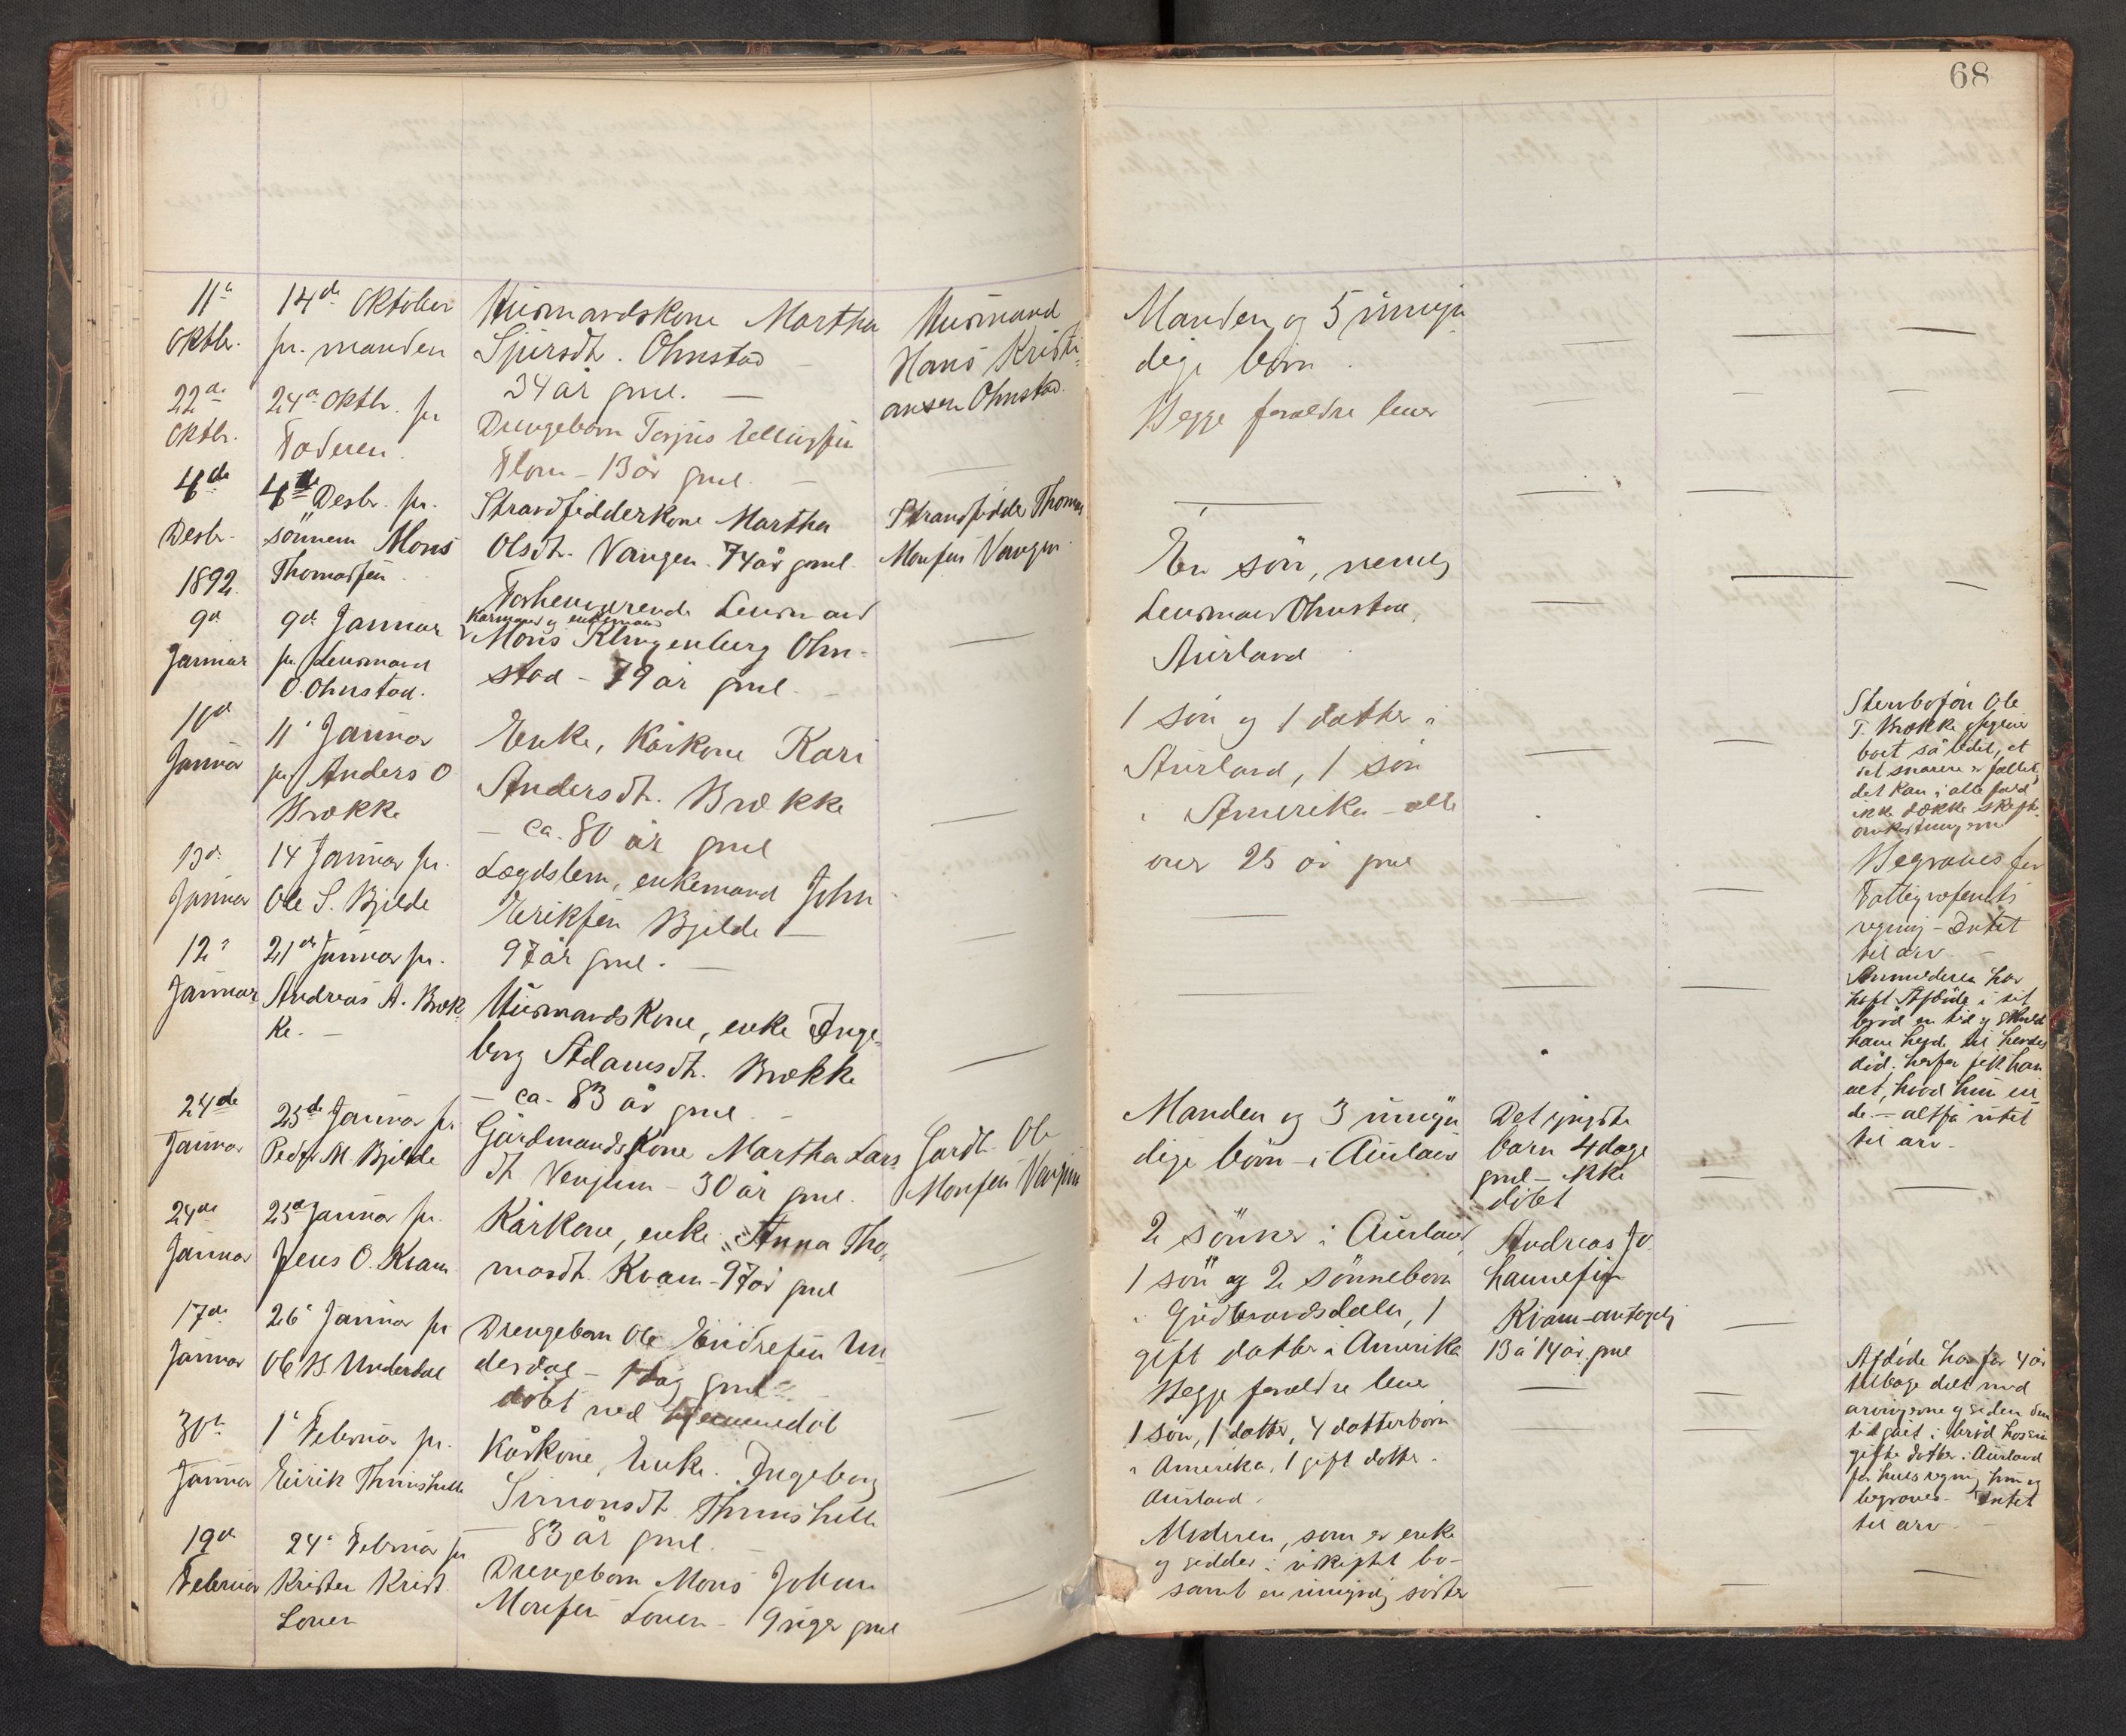 68
11te
Oktbr.
14de Oktober
pr. manden
Husmandskone Martha
Sjursdt. Ohnstad
34 år gml. —
Husmand
Hans Kristi-
ansen Ohnstad.
Manden og 5 umyn
dige börn.
22de
Oktbr.
24de Oktbr. pr
Faderen.
Drengebarn Torjus Ellingsen
Flom - 13 år gml. —
Begge forældre lever
4de
Desbr.
4de Desbr. pr.
sönnen Mons
Thomassen.
Strandsidderkone Martha
Olsdt. Vangen. 74 år gml.
Strandsidder Thomas
Monsen Vangen.
1892.
9de
Januar
9de Januar
pr. Lensmand
O. Ohnstad.
Forhenværende Lensmand
Kårmand og enkemand
Mons Klingenberg Ohn-
stad - 79 år gml. —
En sön, nemlig
Lensmand Ohnstad,
Aurland.
11te
Januar
11te Januar
pr. Anders O
Brække
Enke, Kårkone Kari
Andersdt. Brække
— ca. 80 år gml
1 sön og 1 datter i
Aurland, 1 sön
i Amerika - alle
over 25 år gml
Stervbosön Ole
T. Brække opgiver
boet således, at
det snarere er fallit,
det kan i alle fald
ikke dække skifte
omkostningerne
13de
Januar
14 Januar pr.
Ole S. Bjelde
Lægdslem, enkemand John
Eriksen Bjelde —
97 år gml. —
Begraves for
Fattigvæsenets
regning - Intet
til arv —
12te
Januar
21de Januar pr.
Andreas A. Bræk-
ke. —
Husmandskone, enke Inge-
borg Adamsdt. Brække
— ca. 83 år gml. —
Anmelderen har
havt Afdöde i sit
bröd en tid og skulde
have hende til hendes
död; herfor fik han
alt, hvad hun ei-
de. — altså intet
til arv —
24de
Januar
25de Januar pr
Peder M. Bjelde
Gårdmandskone Martha Lars
dt. Venjum - 30 år gml.
Gardbr. Ole
Monsen Venjum
Manden og 3 umyn
dige börn - i Aurland
Det yngste
barn 4 dage
gml - ikke
döbt
24de
Januar
25de Januar pr.
Jens O. Kvam
Kårkone, enke Anna Tho-
masdt. Kvam - 97 år gml
2 sönner i Aurland,
1 sön og 2 sönnebörn
i Gudbrandsdalen, 1
gift datter i Amerika
Andreas Jo
hannesen
Kvam - antagelig
13 à 14 år gml
17de
Januar
26de Januar pr
Ole B. Underdal
Drengebarn Ole Endresen Un-
derdal - 1 dag gml
döbt ved hjemmedåb
Begge forældre lever
30te
Januar
1te Februar pr.
Eirik Thunshelle
Kårkone, Enke. Ingeborg
Simonsdt. Thunshelle
— 83 år gml. —
1 sön, 1 datter, 4 datterbörn
i Amerika, 1 gift datter i
Aurland.
Afdöde har for 4 år
tilbage delt med
arvingerne og siden den
tid gået i bröd hos sin
gifte datter i Aurland
for hvis regning hun og
begraves - Intet
til arv —
19de
Februar
24de Februar pr
Kristen Krist.
Loven
Drengebarn Mons Johan
Monsen Loven - 9 uger gml
Moderen, som er enke
og sidder i uskiftet bo -
samt en umyndig söster